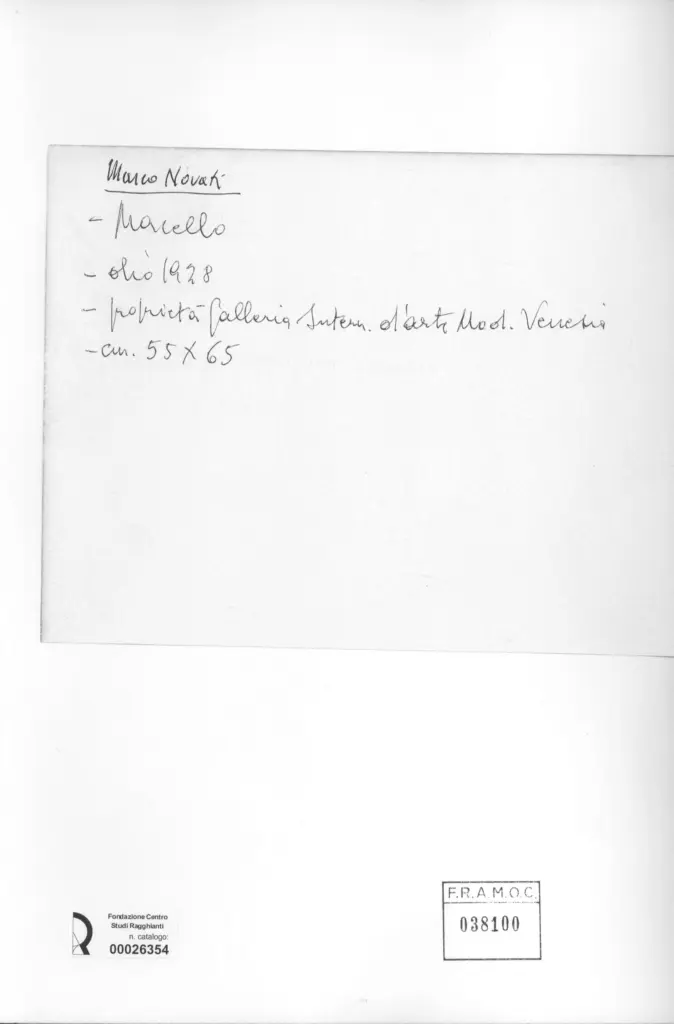 Marco Novati
- Marcello
- olio 1928
- proprietà Galleria Intern. d'arte Mod. Venezia
- cm. 55 X 65
Fondazione Centro
Studi Ragghianti
n. catalogo:
00026354
F.R.A.M.O.C.
038100